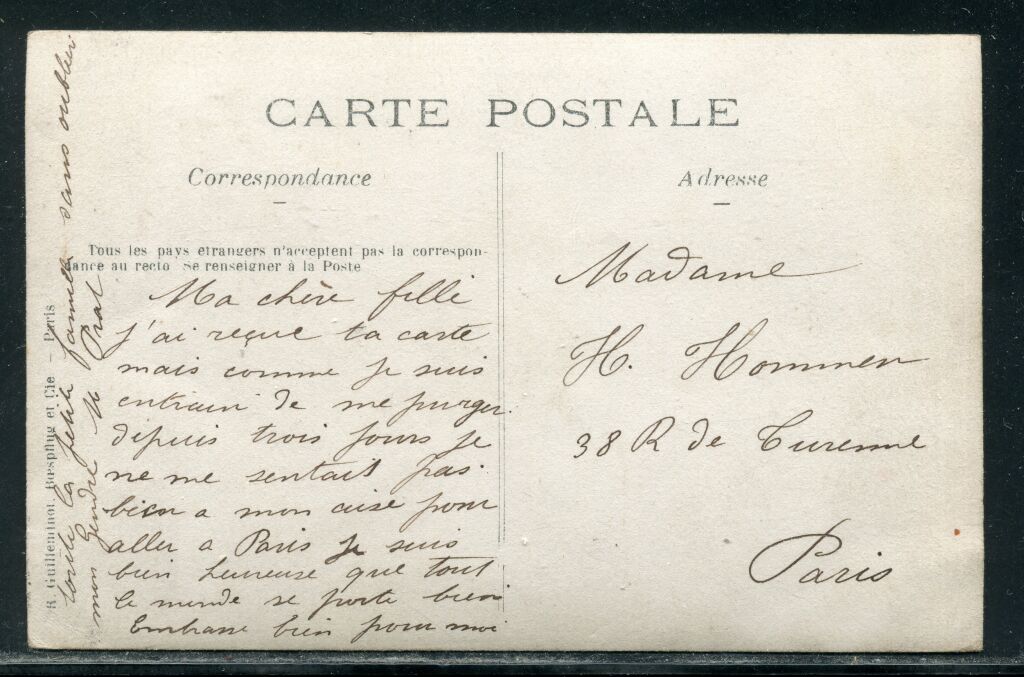 CARTE POSTALE
Correspondance
Tous les pays etrangers n'acceptent pas la correspon-
dance au recto Se renseigner à la Poste
Ma chère fille
j'ai reçue ta carte
mais comme je suis
entrain de me purger
depuis trois jours je
ne me sentait pas
bien a mon aise pour
aller a Paris je suis
bien heureuse que tout
le monde se porte bien
Embrasse bien pour moi
toute la petite famille sans oublier
mon Gendre M Prat
R. Guilleminot, Bœspflug et Cie - Paris
Adresse
Madame
H. Hommen
38 R de Turenne
Paris